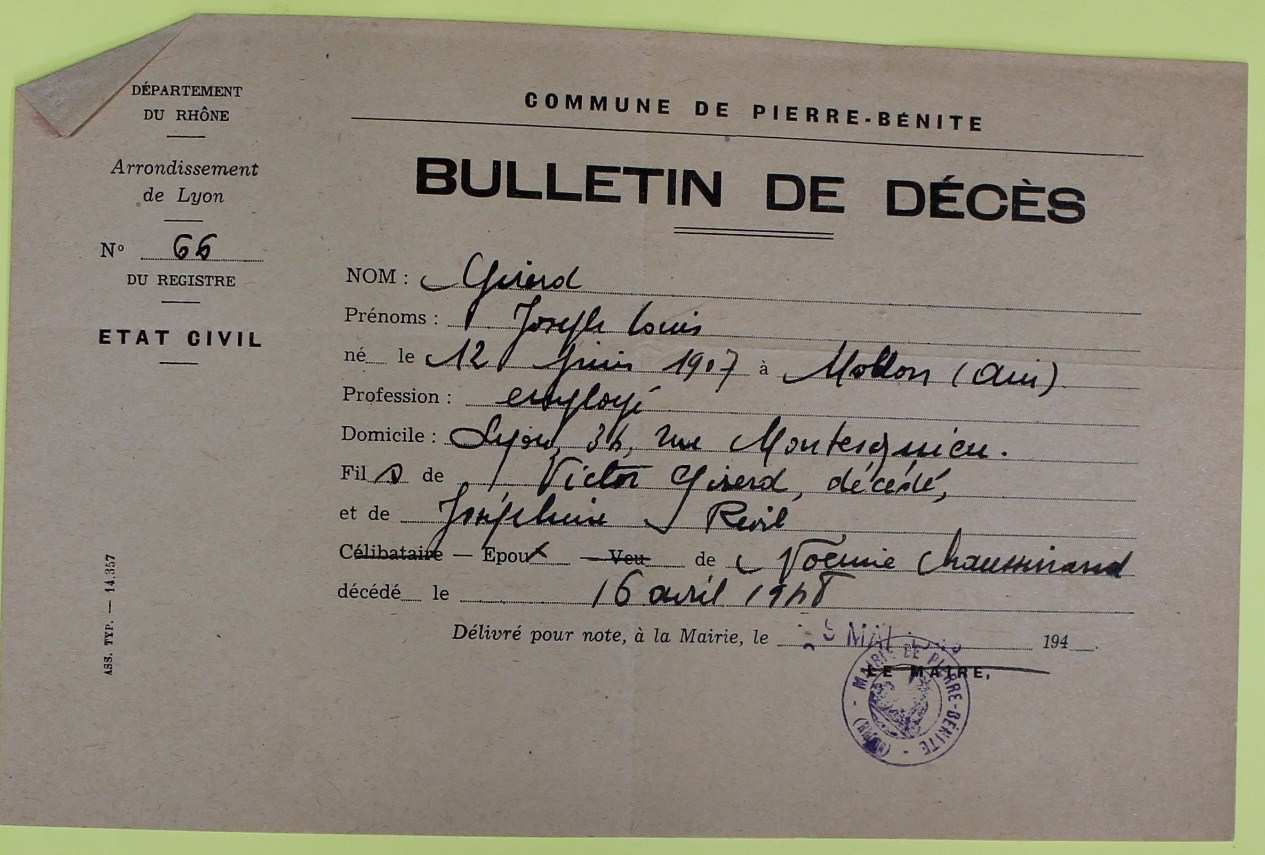 DÉPARTEMENT
DU RHÔNE
Arrondissement
de Lyon
Nº 66
DU REGISTRE
ETAT CIVIL
ASS. TYP. — 14.357
COMMUNE DE PIERRE-BÉNITE
BULLETIN DE DÉCÈS
NOM : Girerd
Prénoms : Joseph Louis
né le 12 Juin 1907 à Mollon (Ain)
Profession : employé
Domicile : Lyon, 36, rue Montesquieu.
Fils de Victor Girerd, décédé,
et de Joséphine Revil
Célibataire — Epoux — Veu de Noémie Chaussinand
décédé le 16 avril 1948
Délivré pour note, à la Mairie, le - 5 MAI 194
LE MAIRE,
MAIRIE DE PIERRE-BÉNITE - (RHÔNE) -